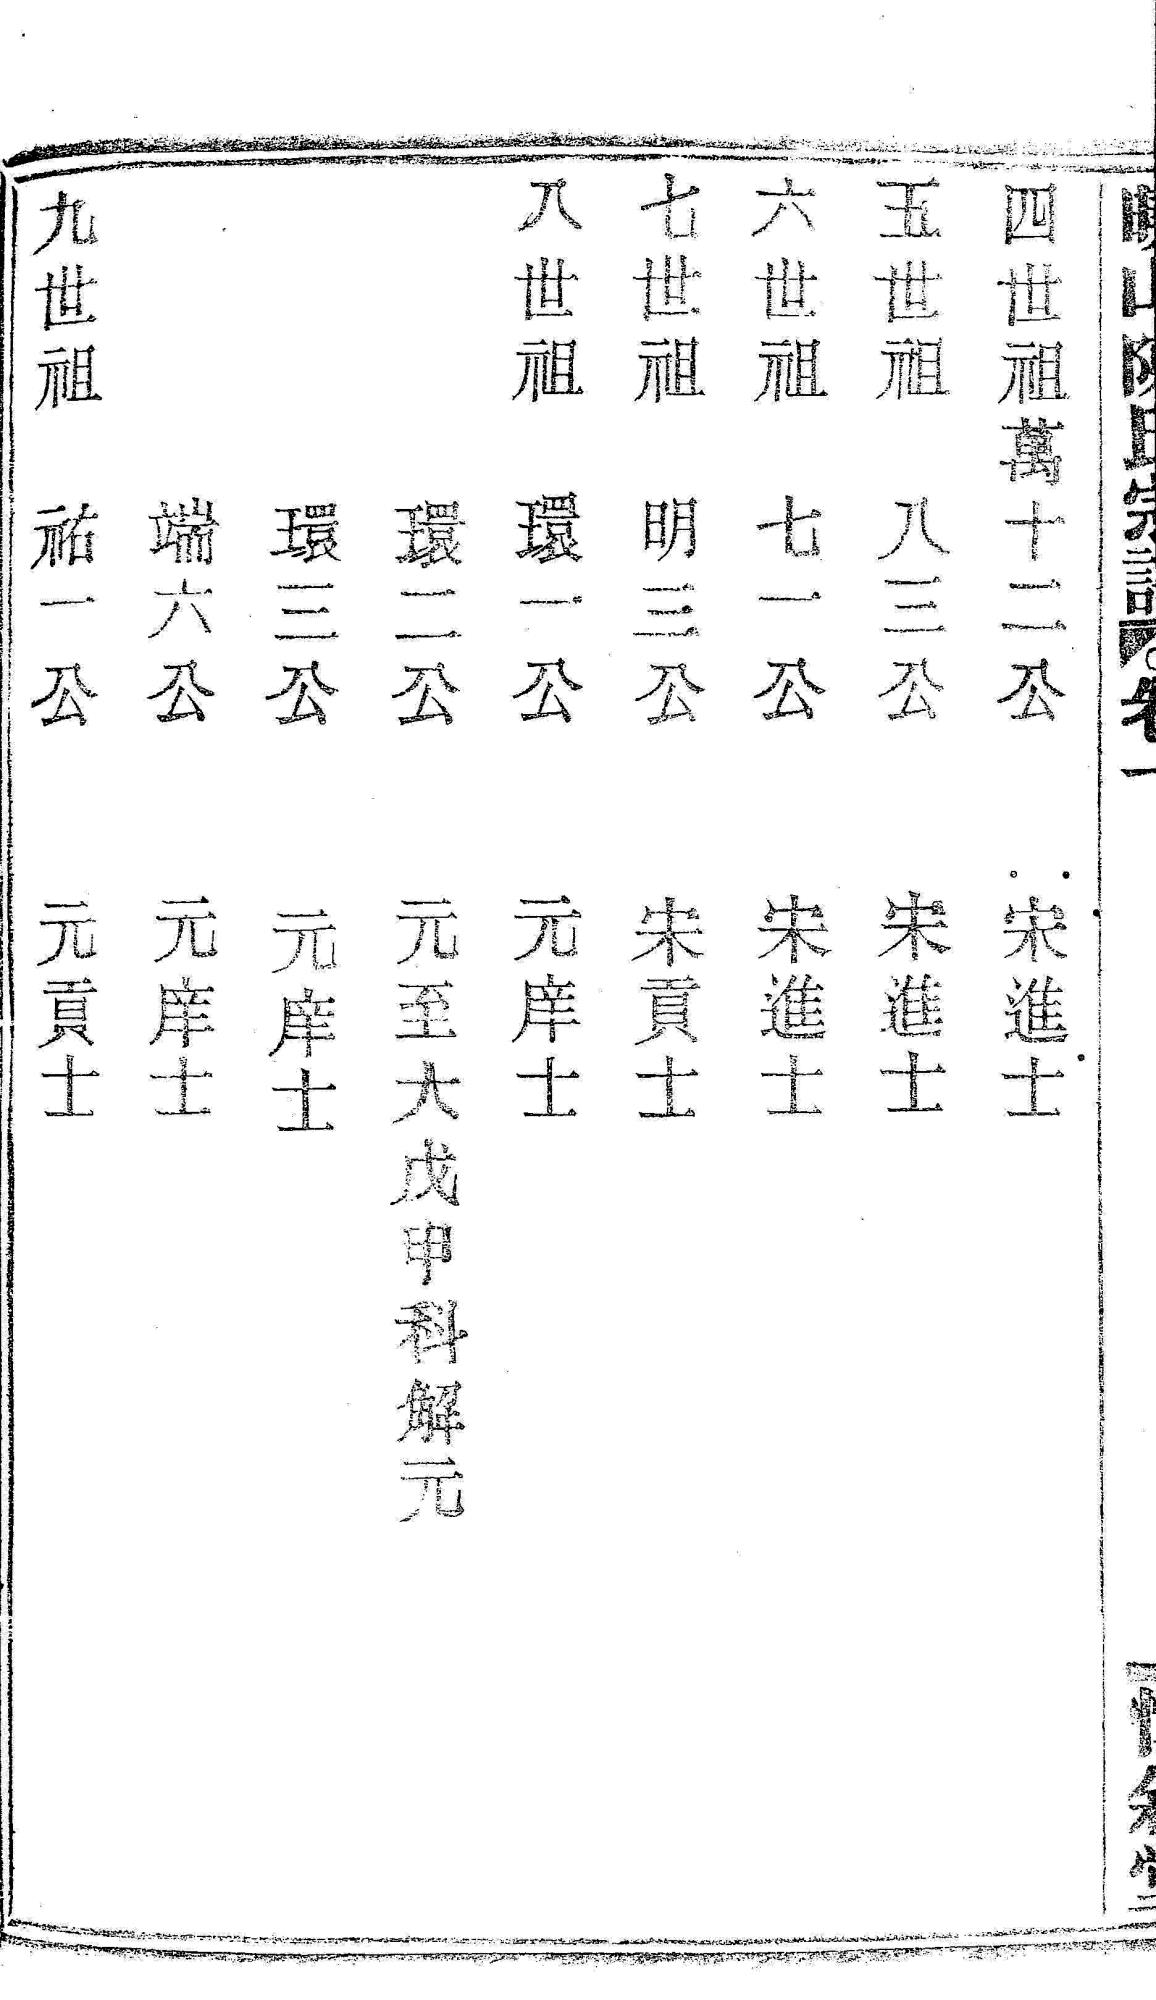 山陳氏宗譜 卷一
四世祖萬十二公 宋進士
五世祖 八三公 宋進士
六世祖 七一公 宋進士
七世祖 明三公 宋貢士
八世祖 環一公 元庠士
環二公 元至大戊申科解元
環三公 元庠士
端六公 元庠士
九世祖 祐一公 元貢士